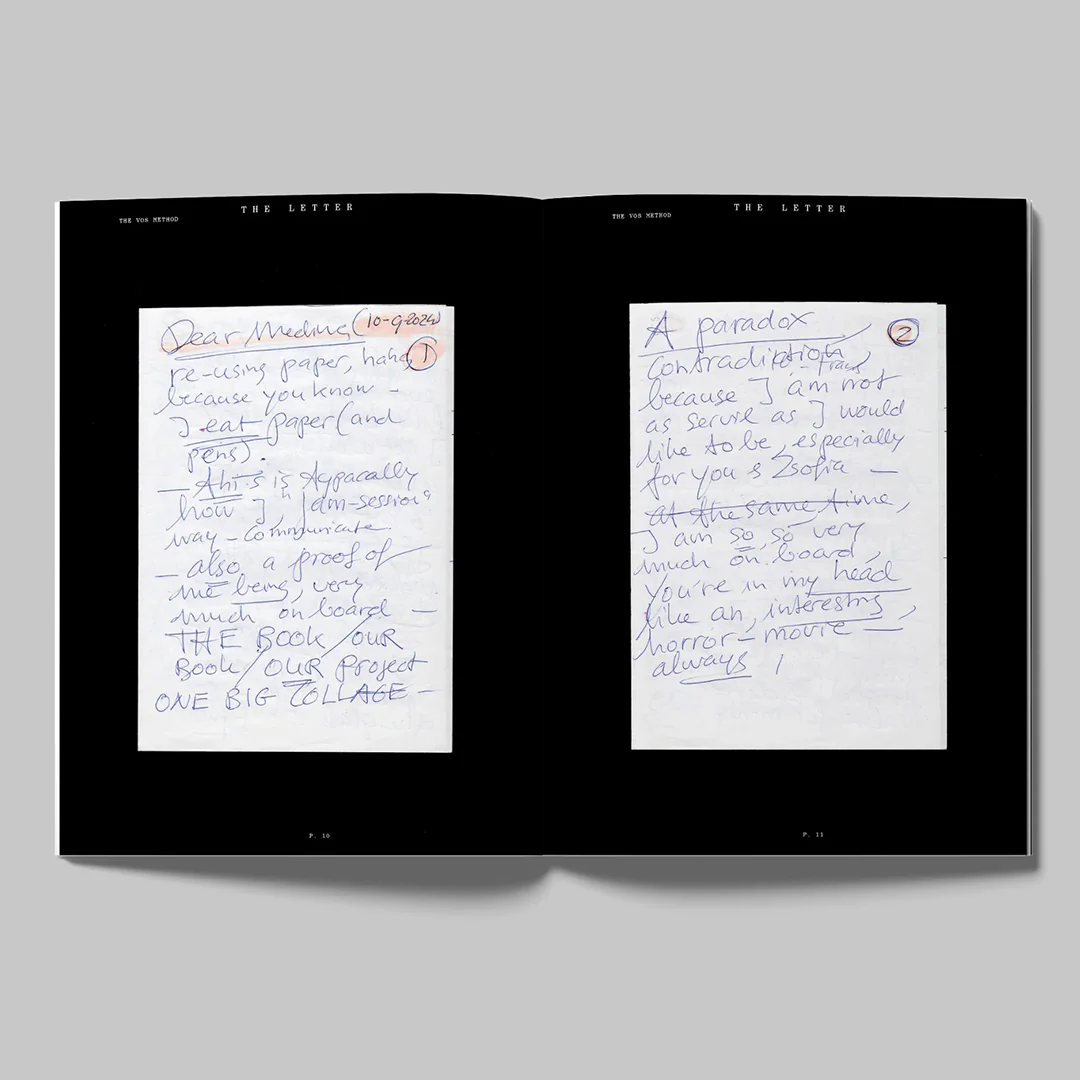 THE LETTER
THE VOS METHOD
Dear (10-9-2024)
re-using paper, haha, 1
because you know -
I eat paper (and
pens).
- this is typacally
how I, "jam-session"
way - communicate
- also, a proof of
me being, very
much on board -
THE BOOK / OUR
Book / OUR project
ONE BIG COLLAGE -
P. 10
THE LETTER
THE VOS METHOD
A paradox 2
contradiction,
because I am not
as servile as I would
like to be, especially
for you & Zsofia -
at the same time,
I am so, so very
much on board,
you're in my head
like an, interesting,
horror-movie -
always !
P. 11